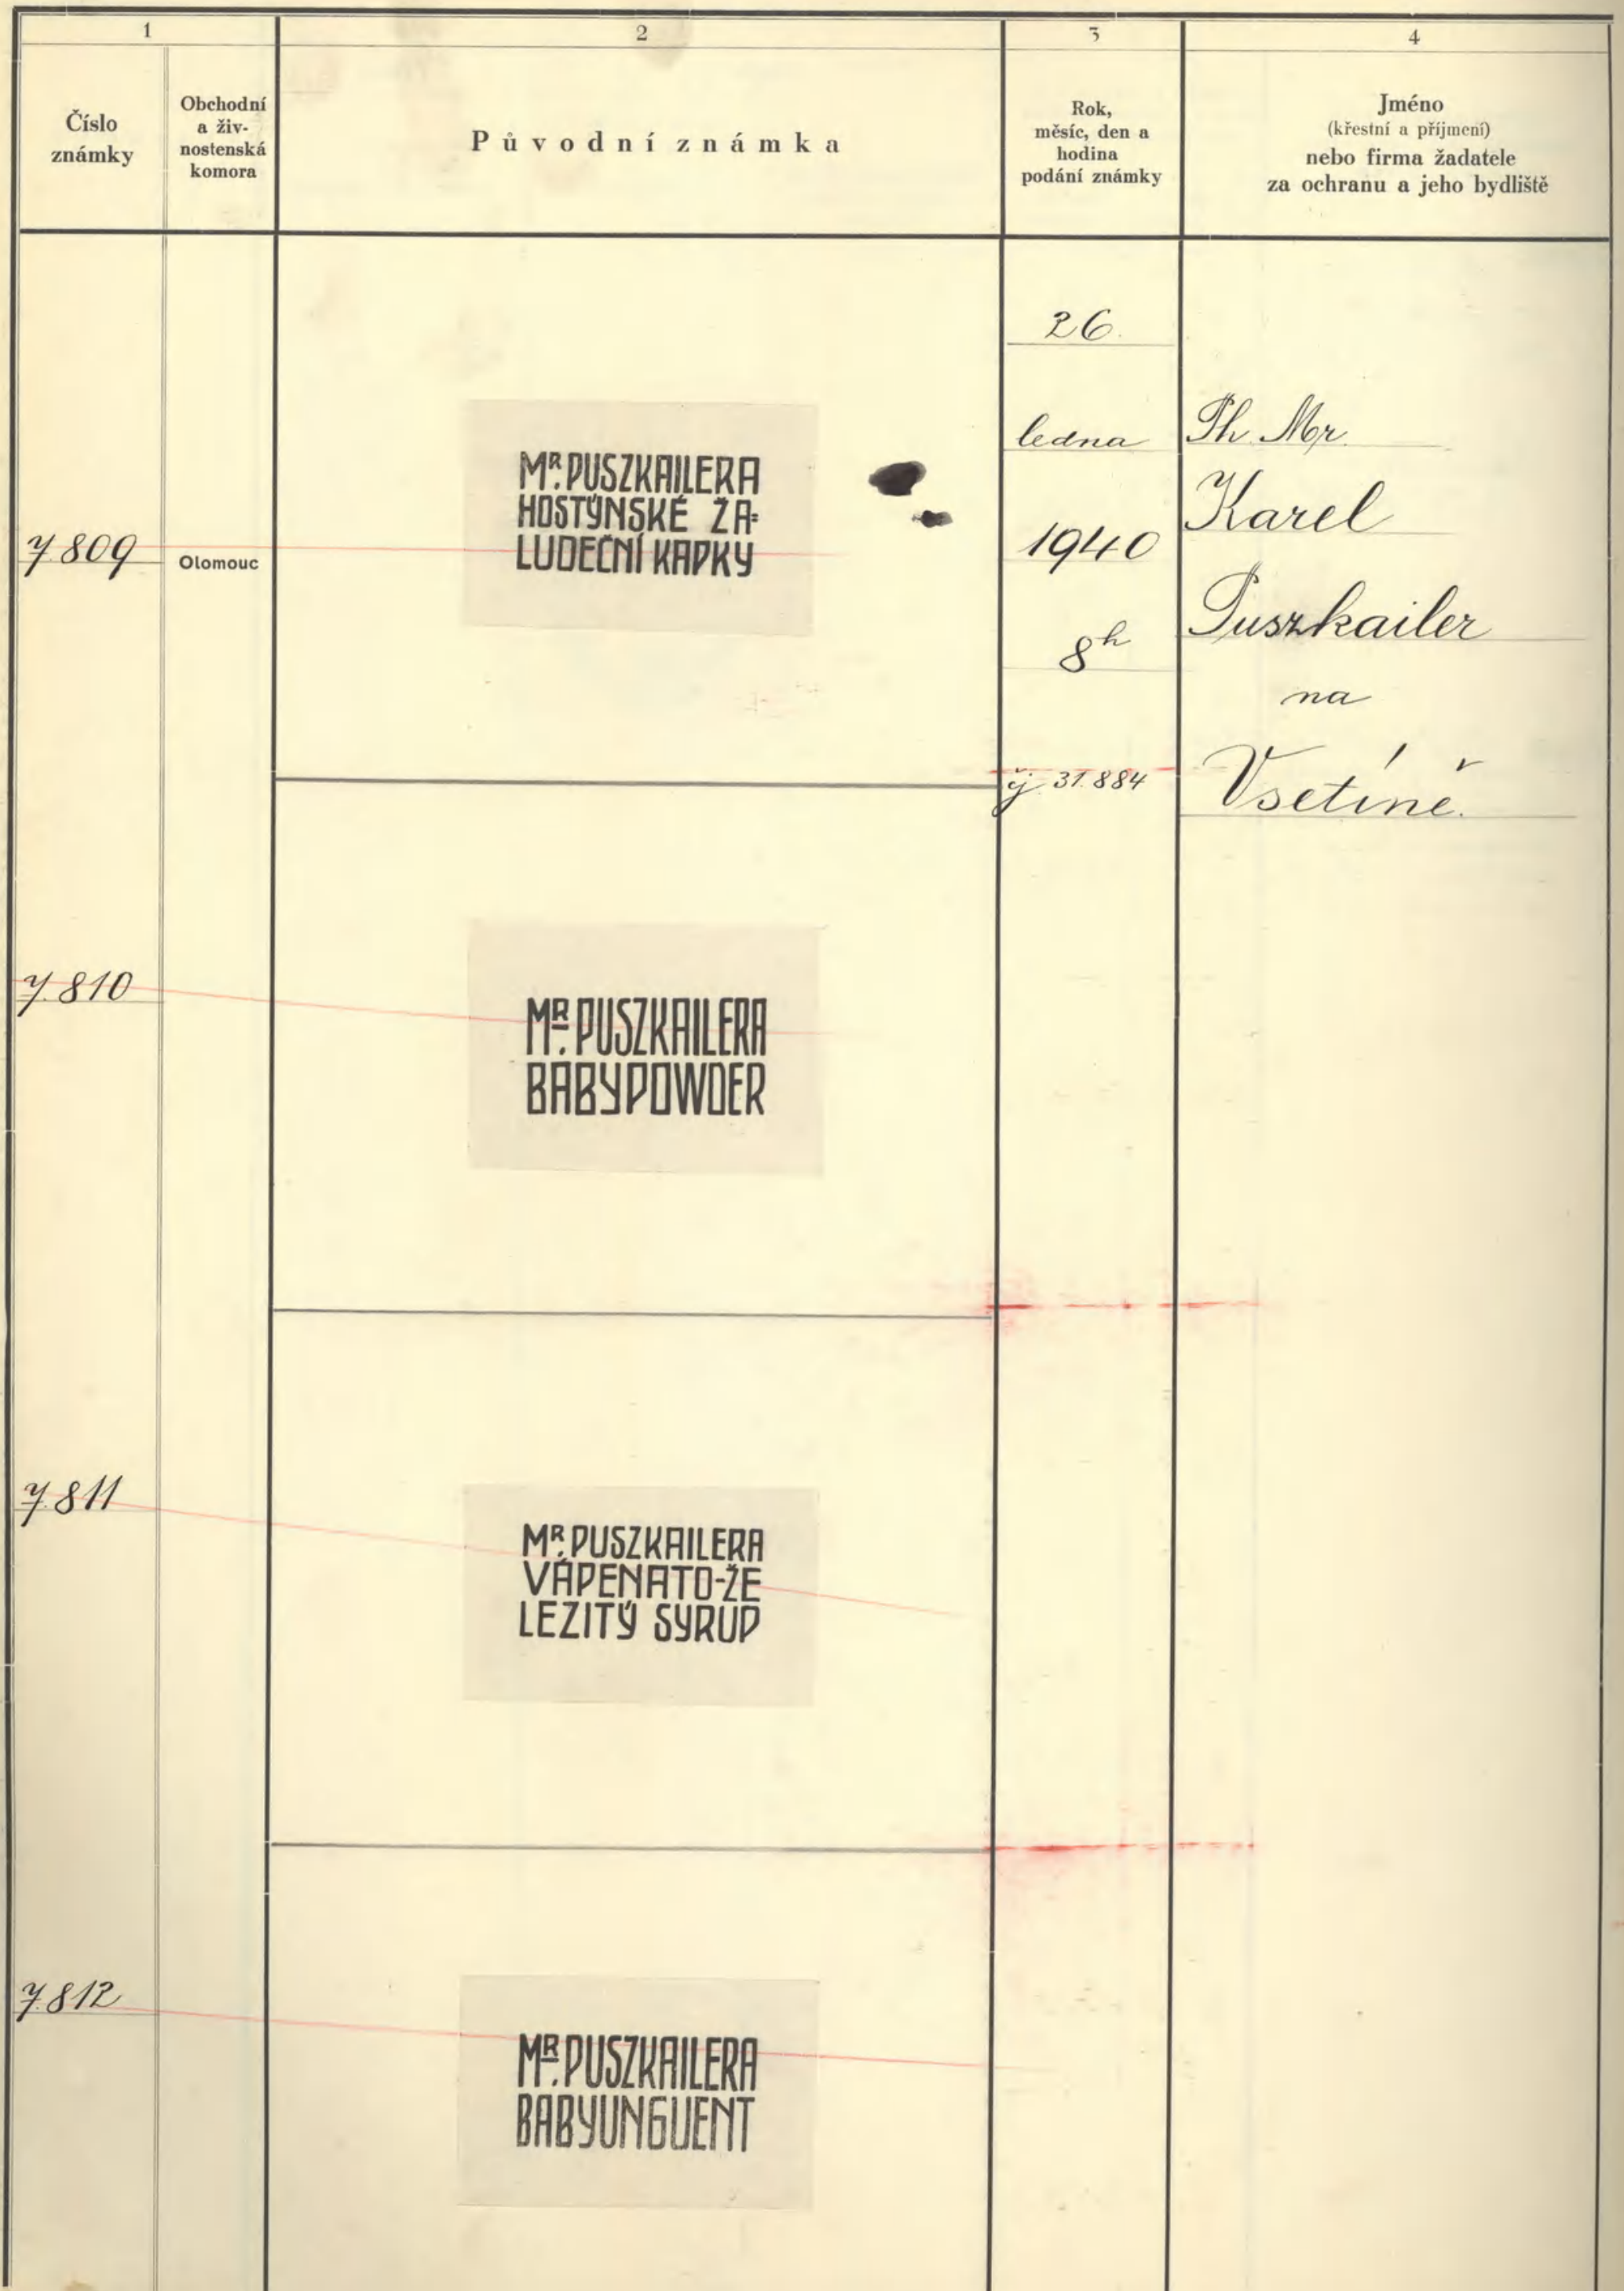 1
2
3
4
Číslo
známky
Obchodní
a živ-
nostenská
komora
Původní známka
Rok,
měsíc, den a
hodina
podání známky
Jméno
(křestní a příjmení)
nebo firma žadatele
za ochranu a jeho bydliště
7.809
Olomouc
MR. PUSZKAILERA
HOSTÝNSKÉ ŽA=
LUDEČNÍ KAPKY
26.
ledna
1940
8h
čj 31.884
Ph. Mr.
Karel
Puszkailer
na
Vsetíně.
7.810
MR. PUSZKAILERA
BABYPOWDER
7.811
MR. PUSZKAILERA
VÁPENATO-ŽE
LEZITÝ SYRUP
7.812
MR. PUSZKAILERA
BABYUNGUENT